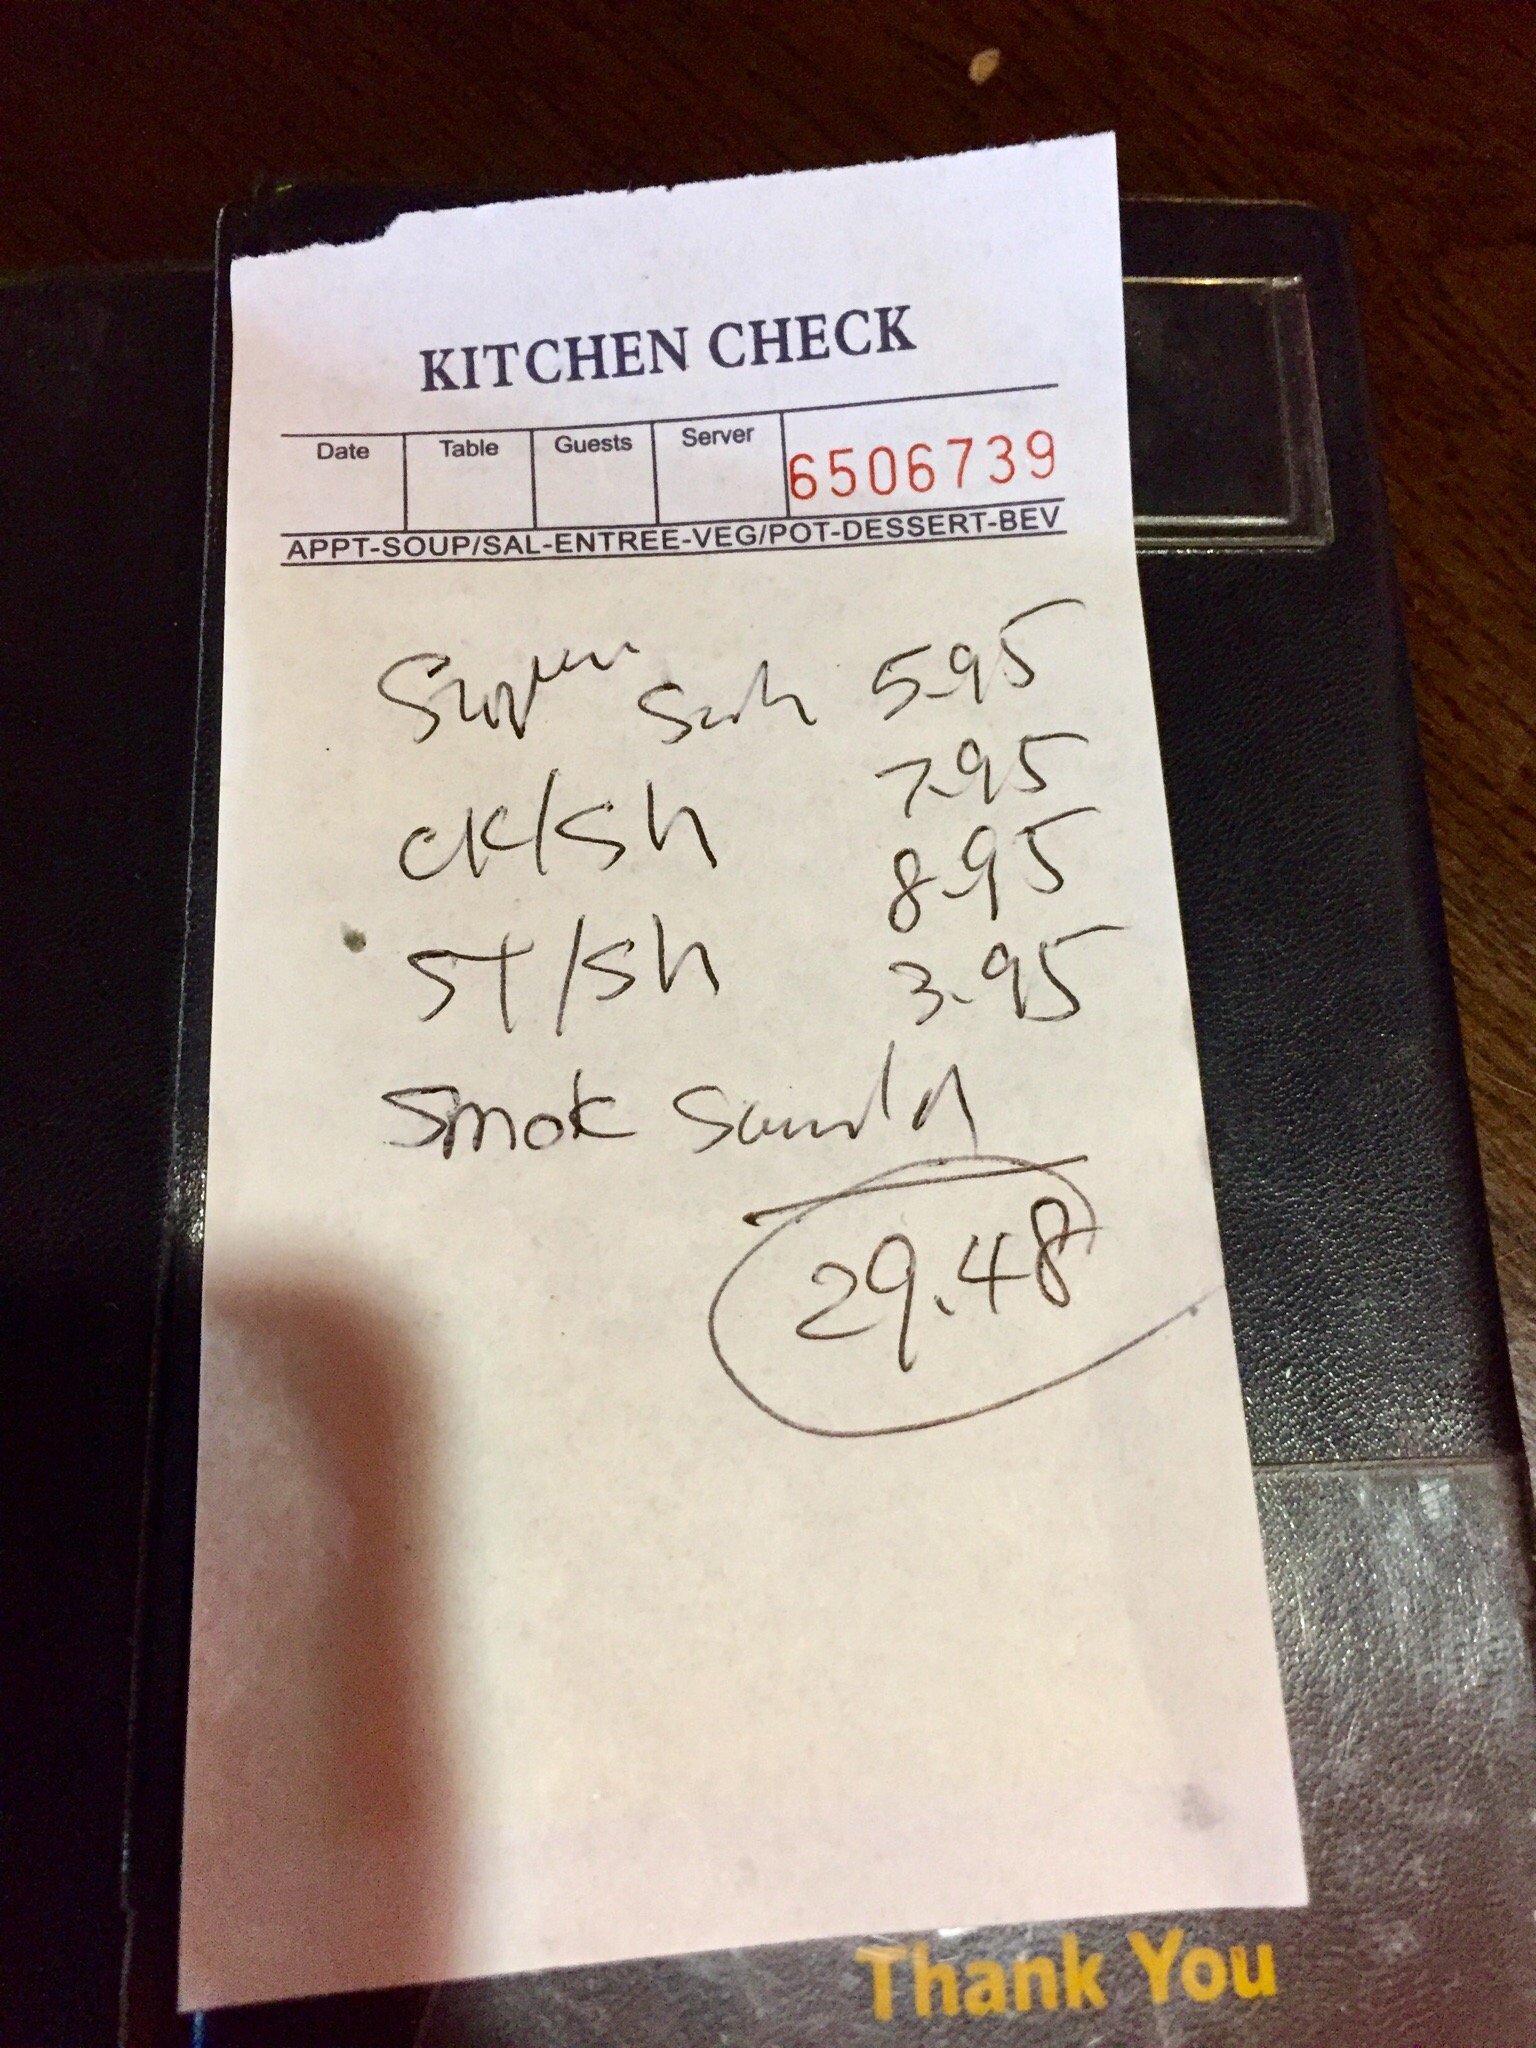 KITCHEN CHECK
Date Table Guests Server 6506739
APPT-SOUP/SAL-ENTREE-VEG/POT-DESSERT-BEV
5.95
CK/Sh 7.95
ST/Sh 8.95
3.95
Smok
29.48
Thank You